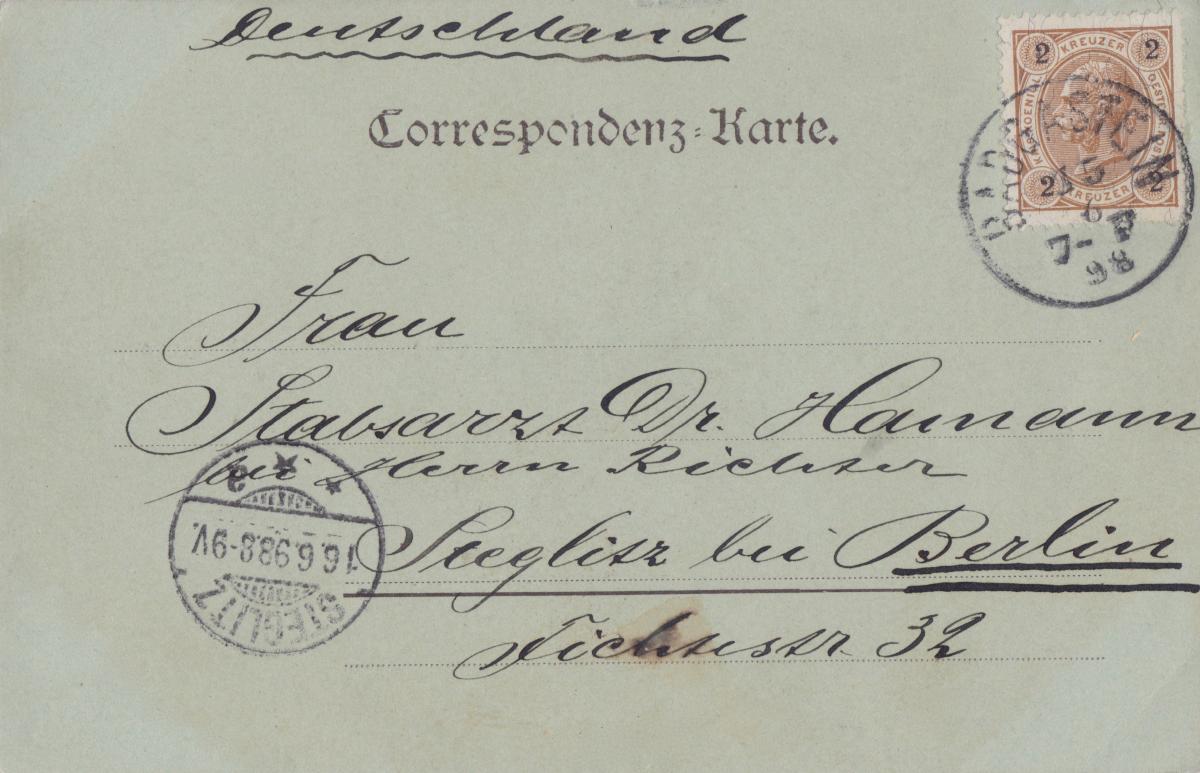 Deutschland
Correspondenz-Karte.
2 KREUZER 2
2 KREUZER 2
15
6
7- P
98
Frau
Stabsarzt Dr. Hamann
bei Herrn Richter
Steglitz bei Berlin
Fichtestr. 32
STEGLITZ
16.6.98.8-9V.
* * 2